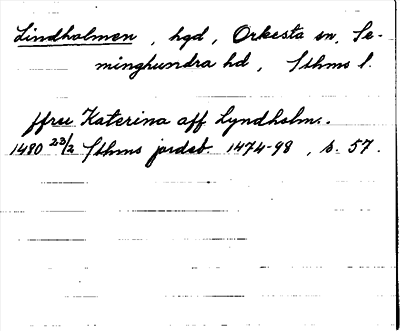 Lindholmen, hgd, Orkesta sn, Se-
minghundra hd, Sthms l.
ffru Katerina aff Lyndholm..
1480 23/2 Sthms jordeb 1474-98, s. 57.